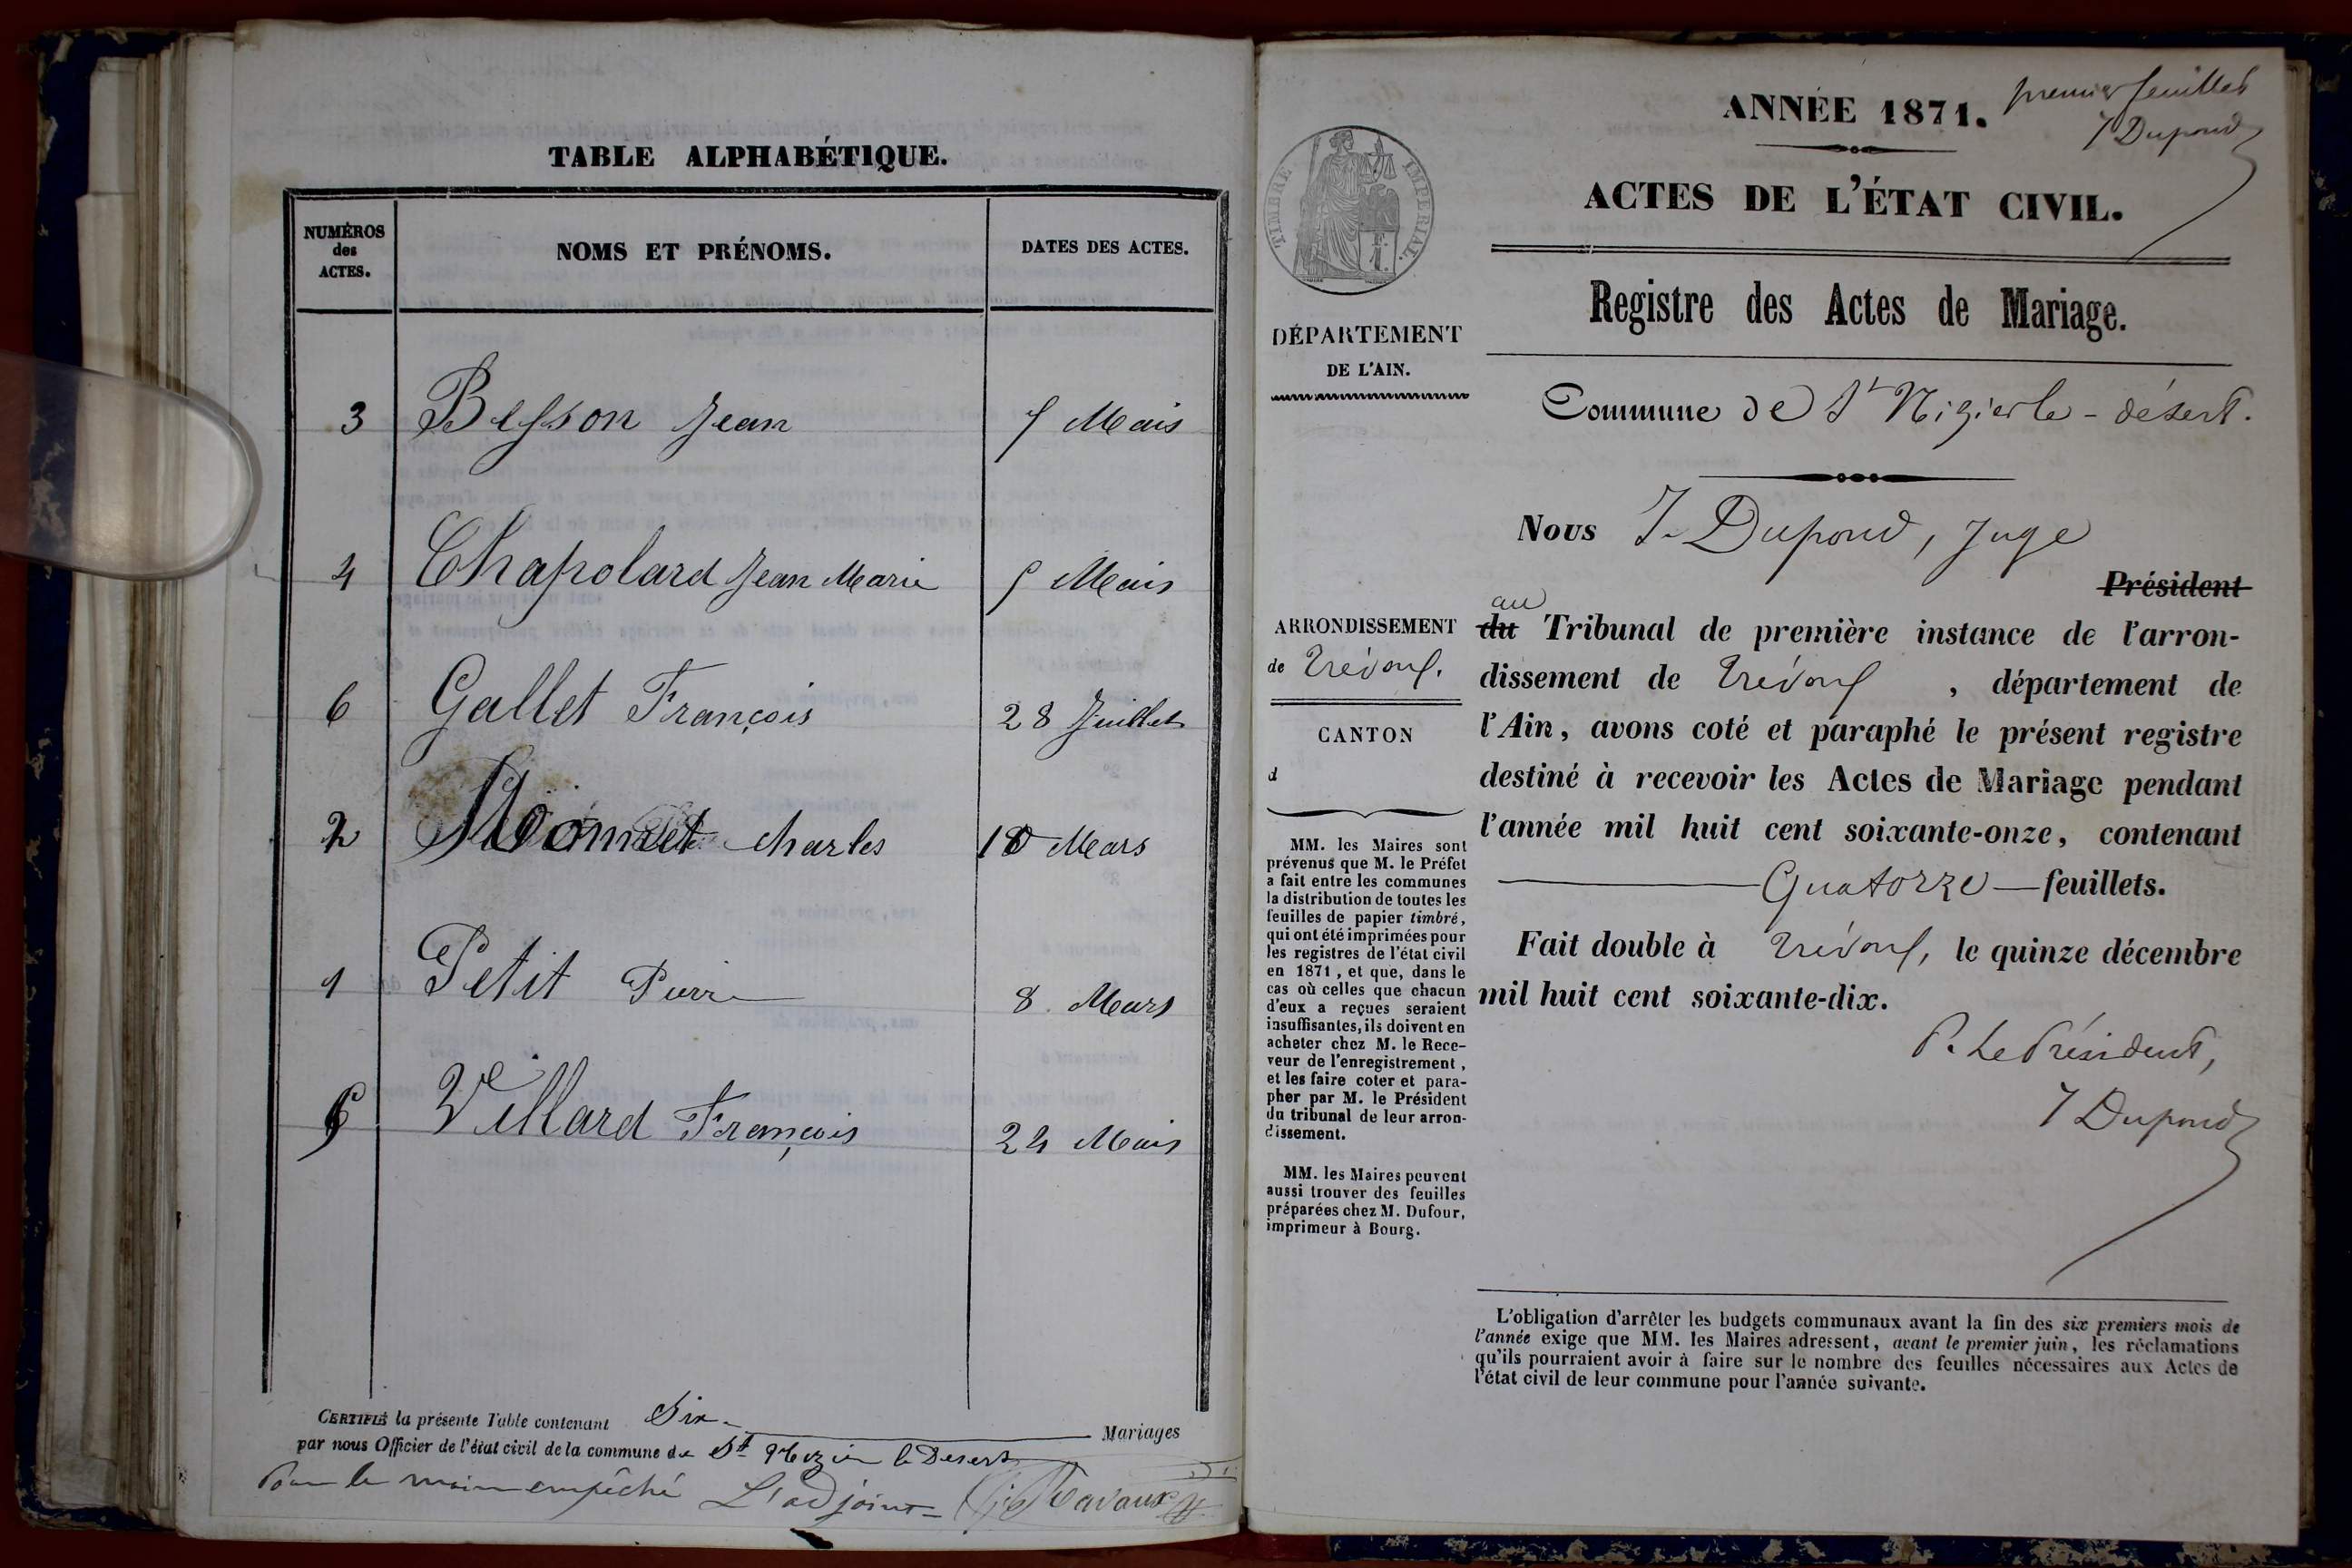 TABLE ALPHABÉTIQUE.
NUMÉROS des ACTES. NOMS ET PRÉNOMS. DATES DES ACTES.
3 Besson Jean 5 Mais
4 Chapolard Jean Marie 5 Mais
6 Gallet François 28 Juillet
2 Charles 10 Mars
1 Petit Pierre 8 Mars
5 Villard François 24 Mais
CERTIFIÉ la présente Table contenant Six Mariages
par nous Officier de l'état civil de la commune de St Nizier le Desert
Pour le maire empêché L'adjoint
premier feuillet
J Dupond
ANNÉE 1871.
ACTES DE L'ÉTAT CIVIL.
TIMBRE IMPÉRIAL.
Registre des Actes de Mariage.
DÉPARTEMENT
DE L'AIN.
Commune de St Nizier le-désert.
Nous J. Dupond, Juge
Président
au
ARRONDISSEMENT
de Trévoux.
CANTON
d
du Tribunal de première instance de l'arron-
dissement de Trévoux, département de
l'Ain, avons coté et paraphé le présent registre
destiné à recevoir les Actes de Mariage pendant
l'année mil huit cent soixante-onze, contenant
Quatorze feuillets.
Fait double à Trévoux, le quinze décembre
mil huit cent soixante-dix.
P. Le Président,
J Dupond
MM. les Maires sont
prévenus que M. le Préfet
a fait entre les communes
la distribution de toutes les
feuilles de papier timbré,
qui ont été imprimées pour
les registres de l'état civil
en 1871, et que, dans le
cas où celles que chacun
d'eux a reçues seraient
insuffisantes, ils doivent en
acheter chez M. le Rece-
veur de l'enregistrement,
et les faire coter et para-
pher par M. le Président
du tribunal de leur arron-
dissement.
MM. les Maires peuvent
aussi trouver des feuilles
préparées chez M. Dufour,
imprimeur à Bourg.
L'obligation d'arrêter les budgets communaux avant la fin des six premiers mois de
l'année exige que MM. les Maires adressent, avant le premier juin, les réclamations
qu'ils pourraient avoir à faire sur le nombre des feuilles nécessaires aux Actes de
l'état civil de leur commune pour l'année suivante.